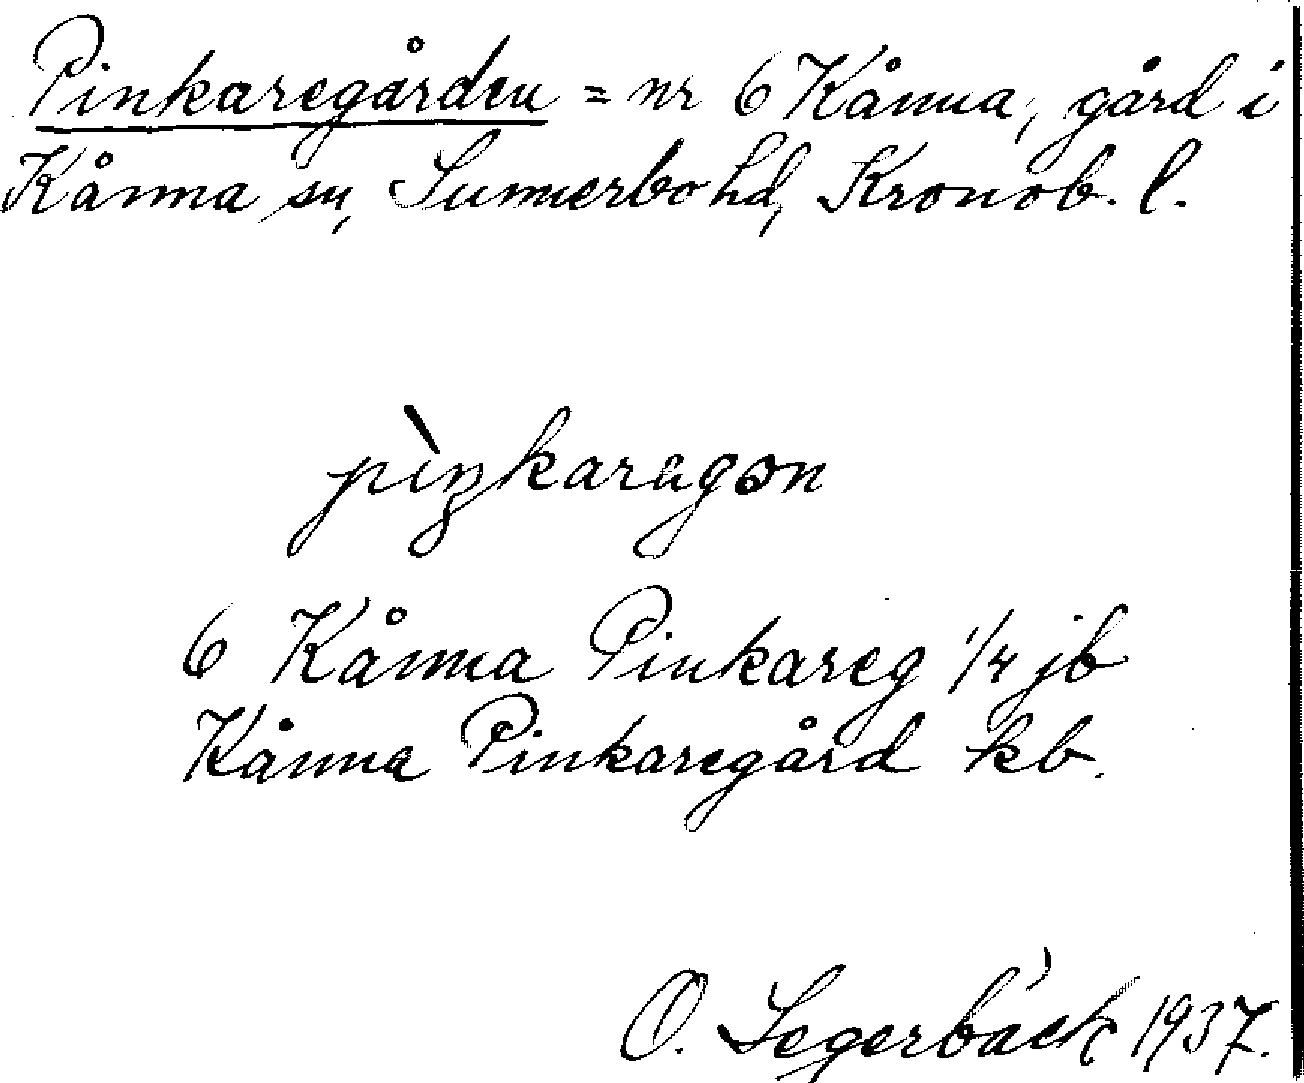 Pinkaregården = nr 6 Kånna, gård i
Kånna sn, Sunnerbo hd, Kronob. l.
pìŋkaragɔn
6 Kånna Pinkareg 1/4 jb
Kånna Pinkaregård kb.
O. Segerbäck 1937.